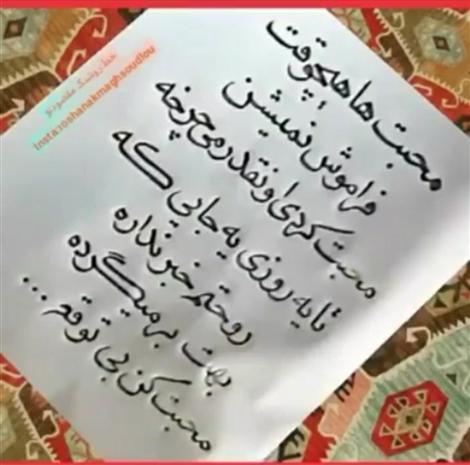 محبت ها هیچوقت
فراموش نمیشن
محبت کردی اونقدر می چرخه
تا یه روزی یه جایی که
روحتم خبر نداره
بهت برمیگرده
محبت کن بی توقع ...
خط: روشنک مقصودلو
Insta: roshanakmaghsoudlou